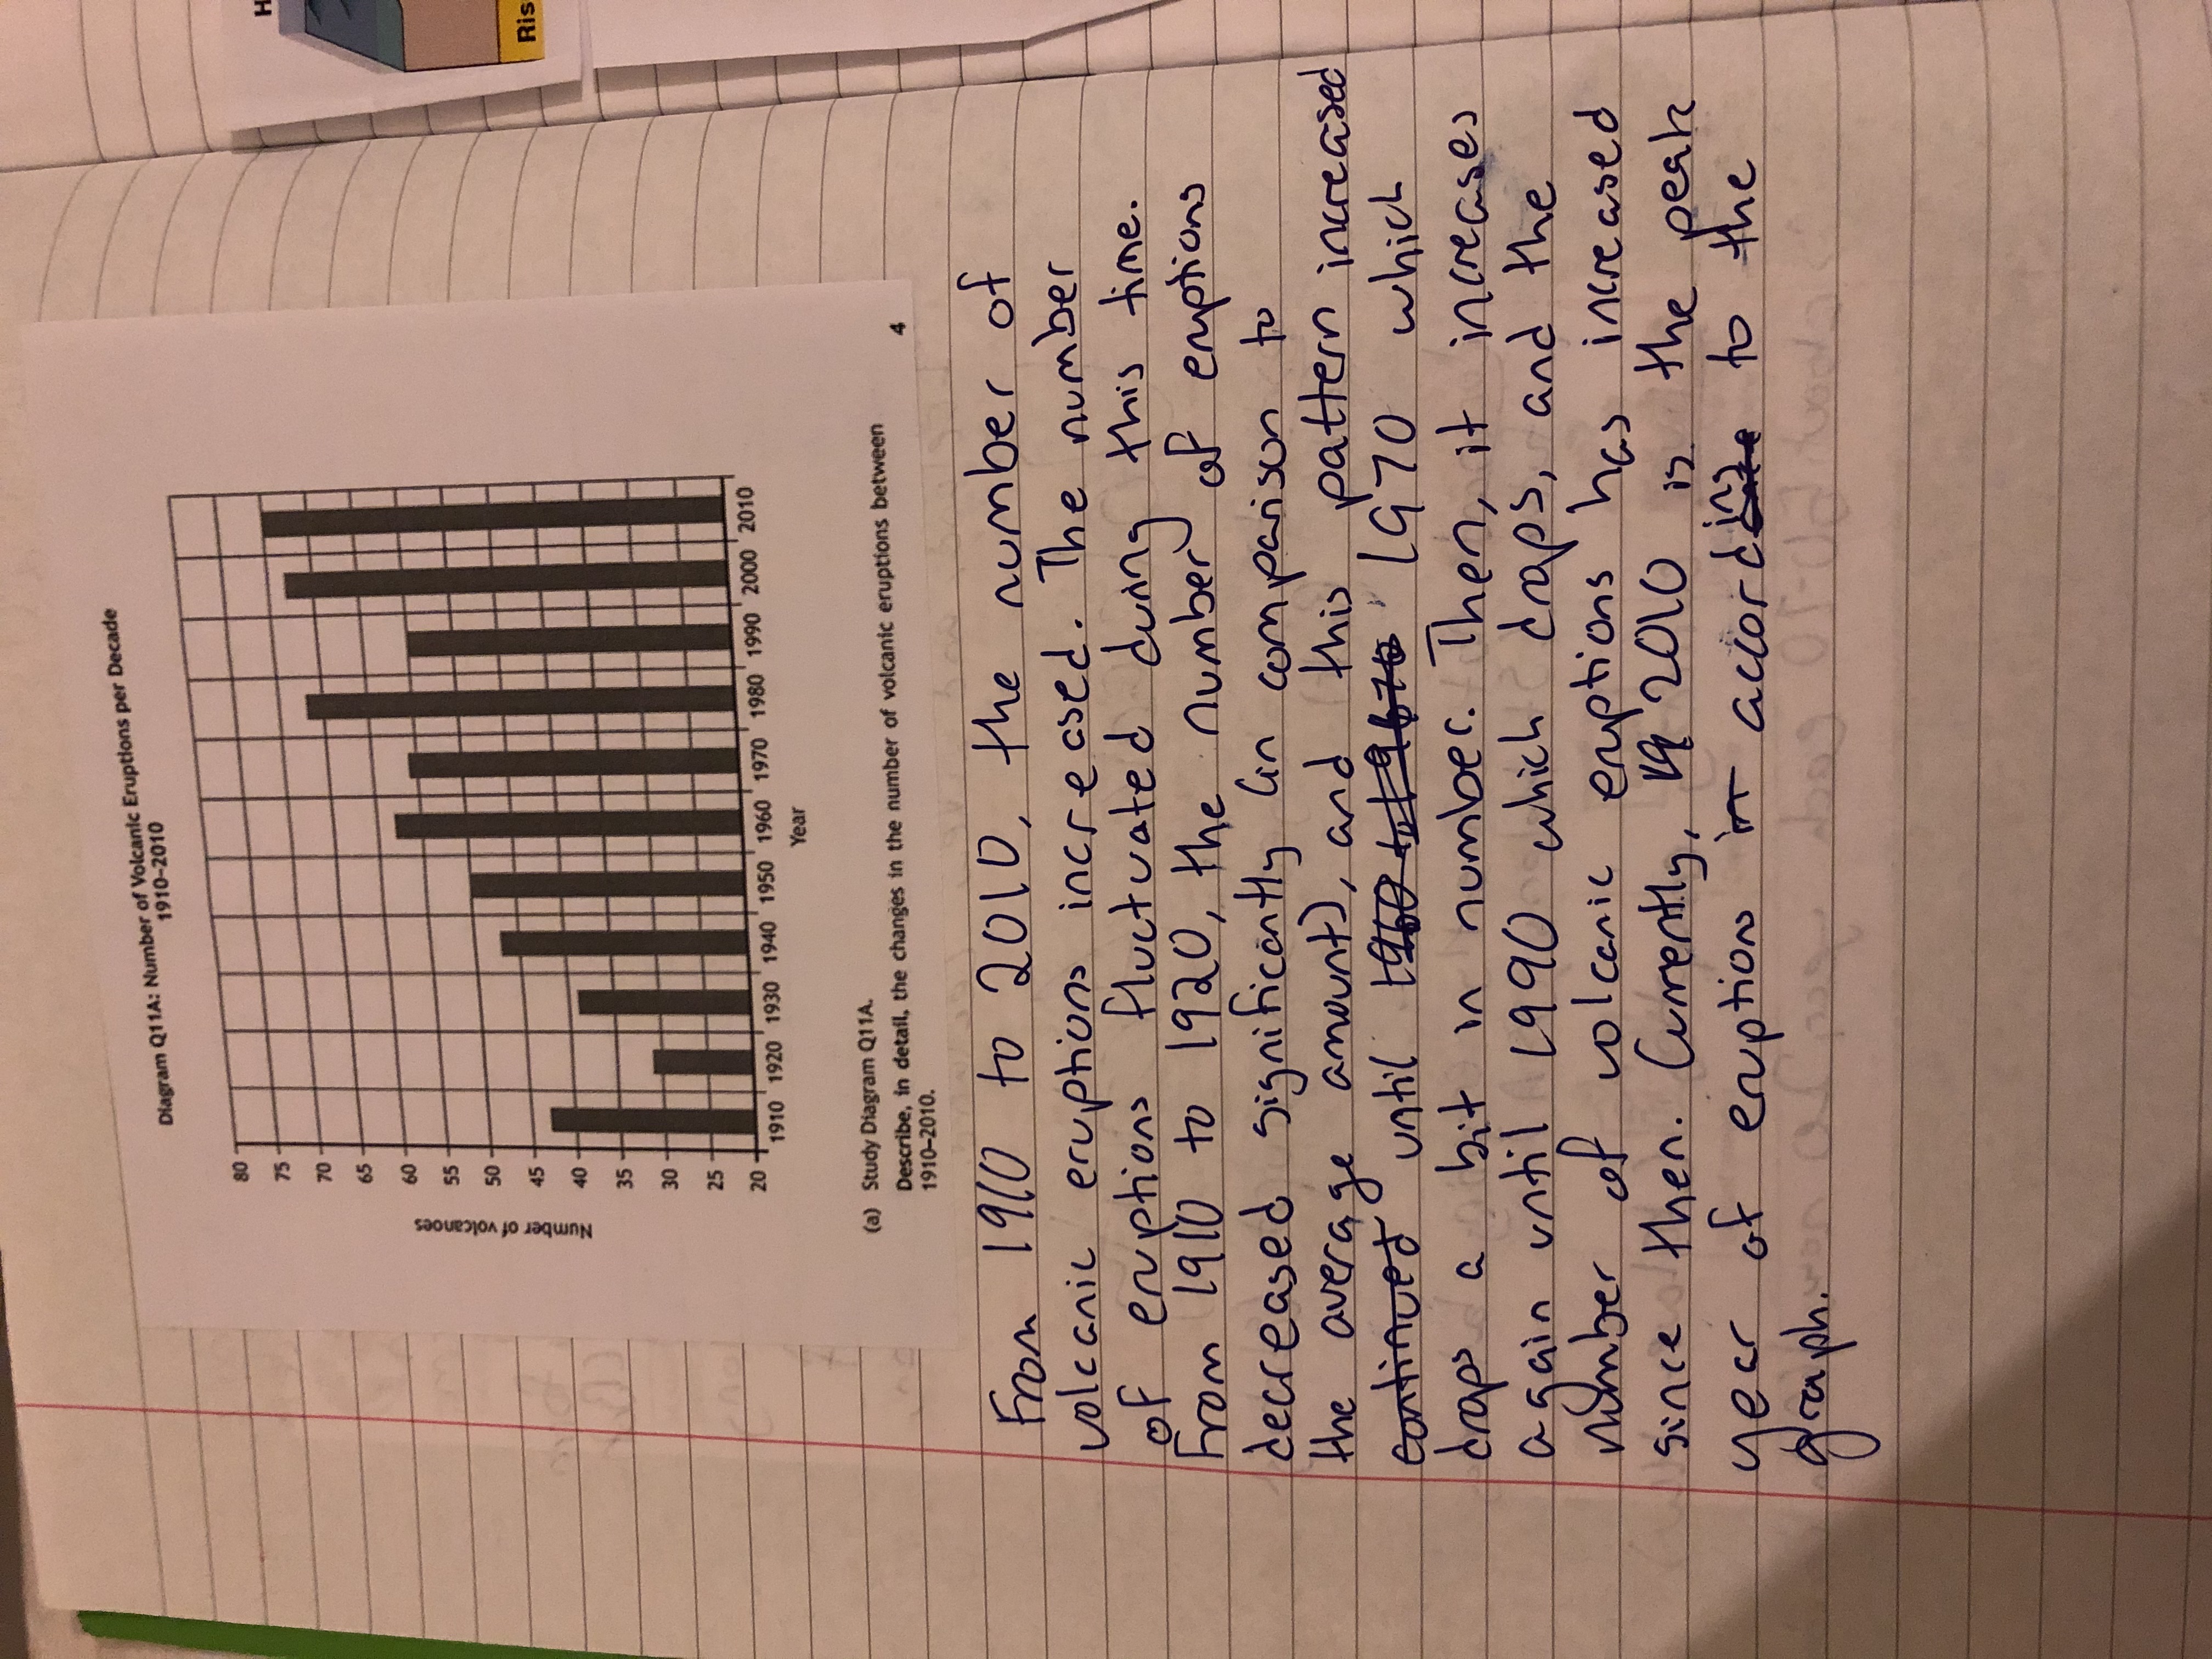 Diagram Q11A: Number of Volcanic Eruptions per Decade
1910–2010
80
75
70
65
60
55
50
45
40
35
30
25
20
Number of volcanoes
1910 1920 1930 1940 1950 1960 1970 1980 1990 2000 2010
Year
(a) Study Diagram Q11A.
Describe, in detail, the changes in the number of volcanic eruptions between
1910–2010.
4
H
Ris
From 1910 to 2010, the number of
volcanic eruptions increased. The number
of eruptions fluctuated during this time.
From 1910 to 1920, the number of eruptions
decreased significantly (in comparison to
the average amount), and this pattern increased
continued until 1970 which
drops a bit in number. Then, it increases
again until 1990 which drops, and the
number of volcanic eruptions has increased
since then. Currently, 2010 is the peak
year of eruptions in according to the
graph.